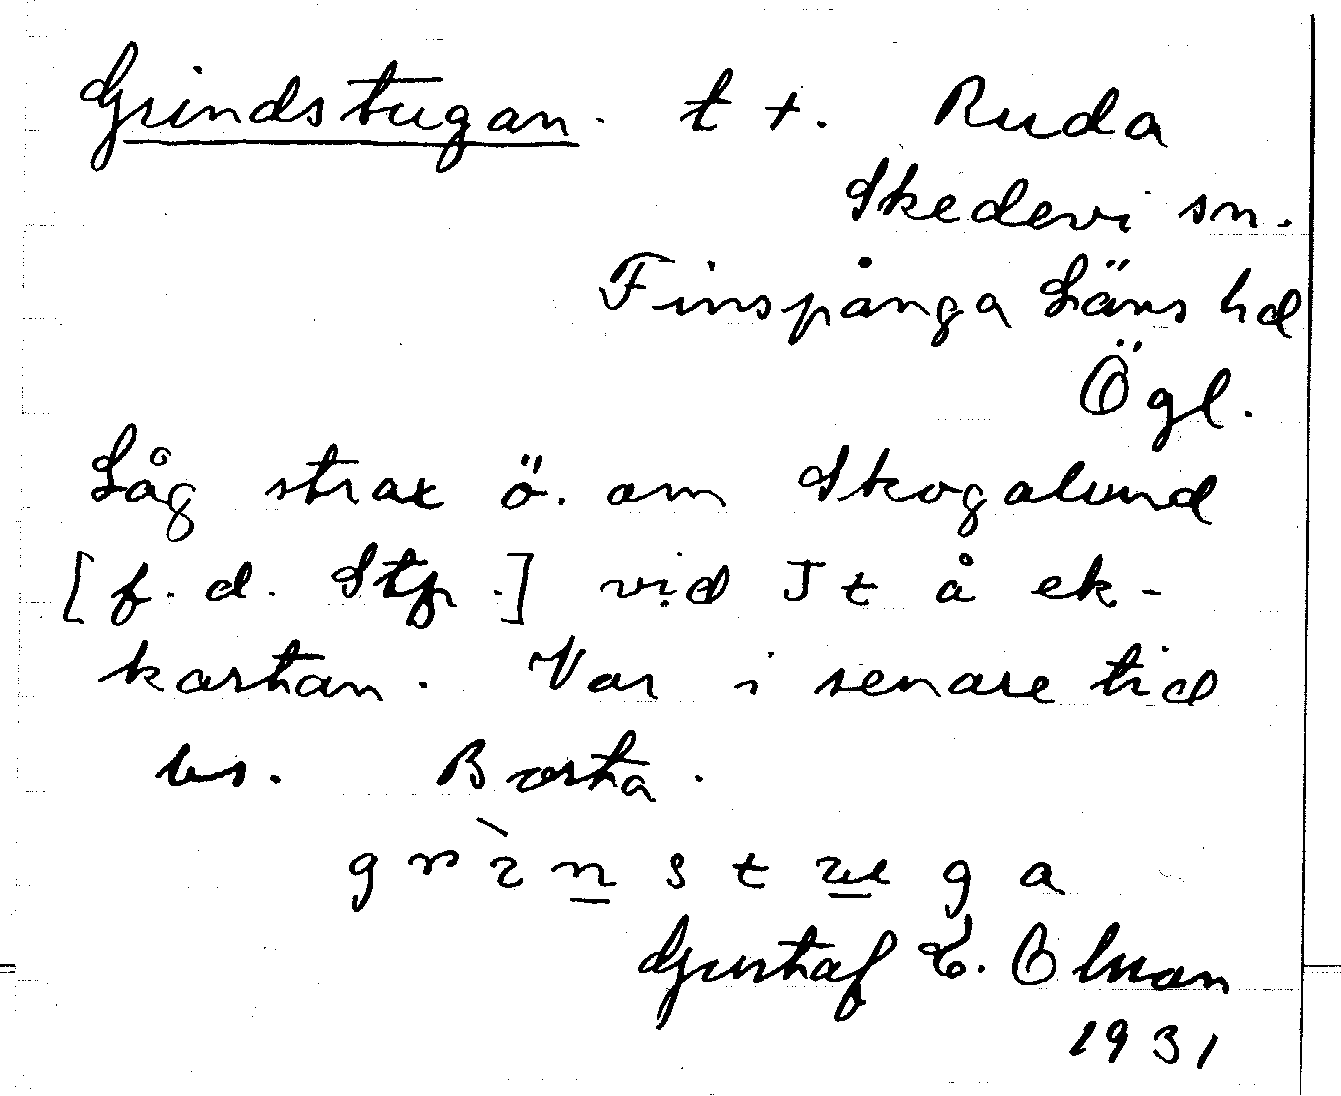 Grindstugan. t +. Ruda
Skedevi sn.
Finspånga Läns hd
Ögl.
Låg strax ö. om Skogalund
[f. d. Stp.] vid Jt å ek-
kartan. Var i senare tid
bs. Borta.
Gustaf E. Olsson
1931